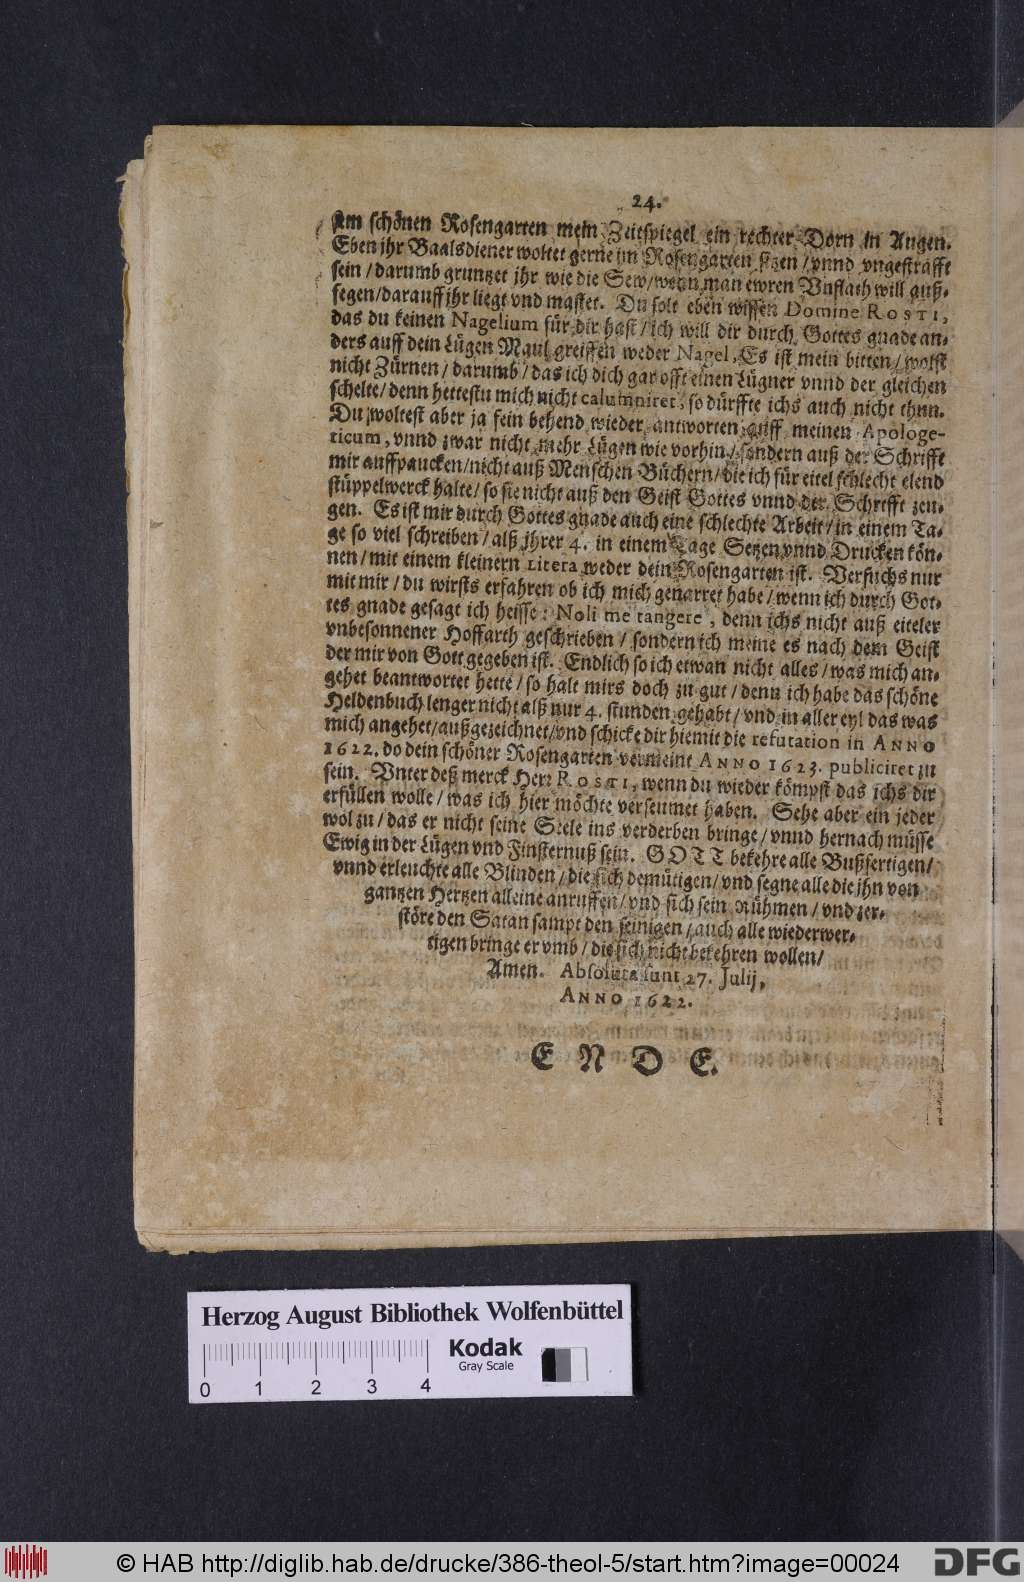 24.
Am schönen Rosengarten mein Zeitspiegel ein rechter Dorn in Augen.
Eben ihr Baalsdiener woltet gerne im Rosengarten sizen / vnnd vngestrafft
sein / darumb gruntzet jhr wie die Sew / wenn man ewren Vnflath will auß-
fegen / darauff jhr liegt vnd mastet. Du solt eben wissen Domine ROSTI,
das du keinen Nagelium für dir hast / ich will dir durch Gottes gnade an-
ders auff dein Lügen Maul greiffen weder Nagel, Es ist mein bitten / wolst
nicht Zürnen / darumb / das ich dich gar offt einen Lügner vnnd der gleichen
schelte / denn hettestu mich nicht calumniret, so dürffte ichs auch nicht thun.
Du woltest aber ja fein behend wieder antworten auff meinen Apologe-
ticum, vnnd zwar nicht mehr Lügen wie vorhin / sondern auß der Schrifft
mir auffpaucken / nicht auß Menschen Büchern / die ich für eitel schlecht elend
stüppelwerck halte / so sie nicht auß den Geist Gottes vnnd der Schrifft zeu-
gen. Es ist mir durch Gottes gnade auch eine schlechte Arbeit / in einem Ta-
ge so viel schreiben / alß jhrer 4. in einem Tage Setzen vnnd Drucken kön-
nen / mit einem kleinern Litera weder dein Rosengarten ist. Versuchs nur
mit mir / du wirsts erfahren ob ich mich genarret habe / wenn ich durch Got-
tes gnade gesagt ich heisse: Noli me tangere, denn ichs nicht auß eiteler
vnbesonnener Hoffarth geschrieben / sondern ich meine es nach dem Geist
der mir von Gott gegeben ist. Endlich so ich etwan nicht alles / was mich an-
gehet beantwortet hette / so halt mirs doch zu gut / denn ich habe das schöne
Heldenbuch lenger nicht alß nur 4. stunden gehabt / vnd in aller eyl das was
mich angehet / außgezeichnet / vnd schicke dir hiemit die refutation in ANNO
1622. do dein schöner Rosengarten vermeint ANNO 1623. publiciret zu
sein. Vnter deß merck Herr ROSTI, wenn du wieder kömpst das ichs dir
erfüllen wolle / was ich hier möchte verseumet haben. Sehe aber ein jeder
wol zu / das er nicht seine Seele ins verderben bringe / vnnd hernach müsse
Ewig in der Lügen vnd Finsternuß sein. GOTT bekehre alle Bußfertigen /
vnnd erleuchte alle Blinden / die sich demütigen / vnd segne alle die ihn von
gantzen Hertzen alleine anruffen / vnd sich sein Rühmen / vnd zer-
störe den Satan sampt den seinigen / auch alle wiederwer-
tigen bringe er vmb / die sich nicht bekehren wollen /
Amen. Absoluta sunt 27. Julij,
ANNO 1622.
ENDE.
Herzog August Bibliothek Wolfenbüttel
Kodak
Gray Scale
0 1 2 3 4
© HAB http://diglib.hab.de/drucke/386-theol-5/start.htm?image=00024
DFG